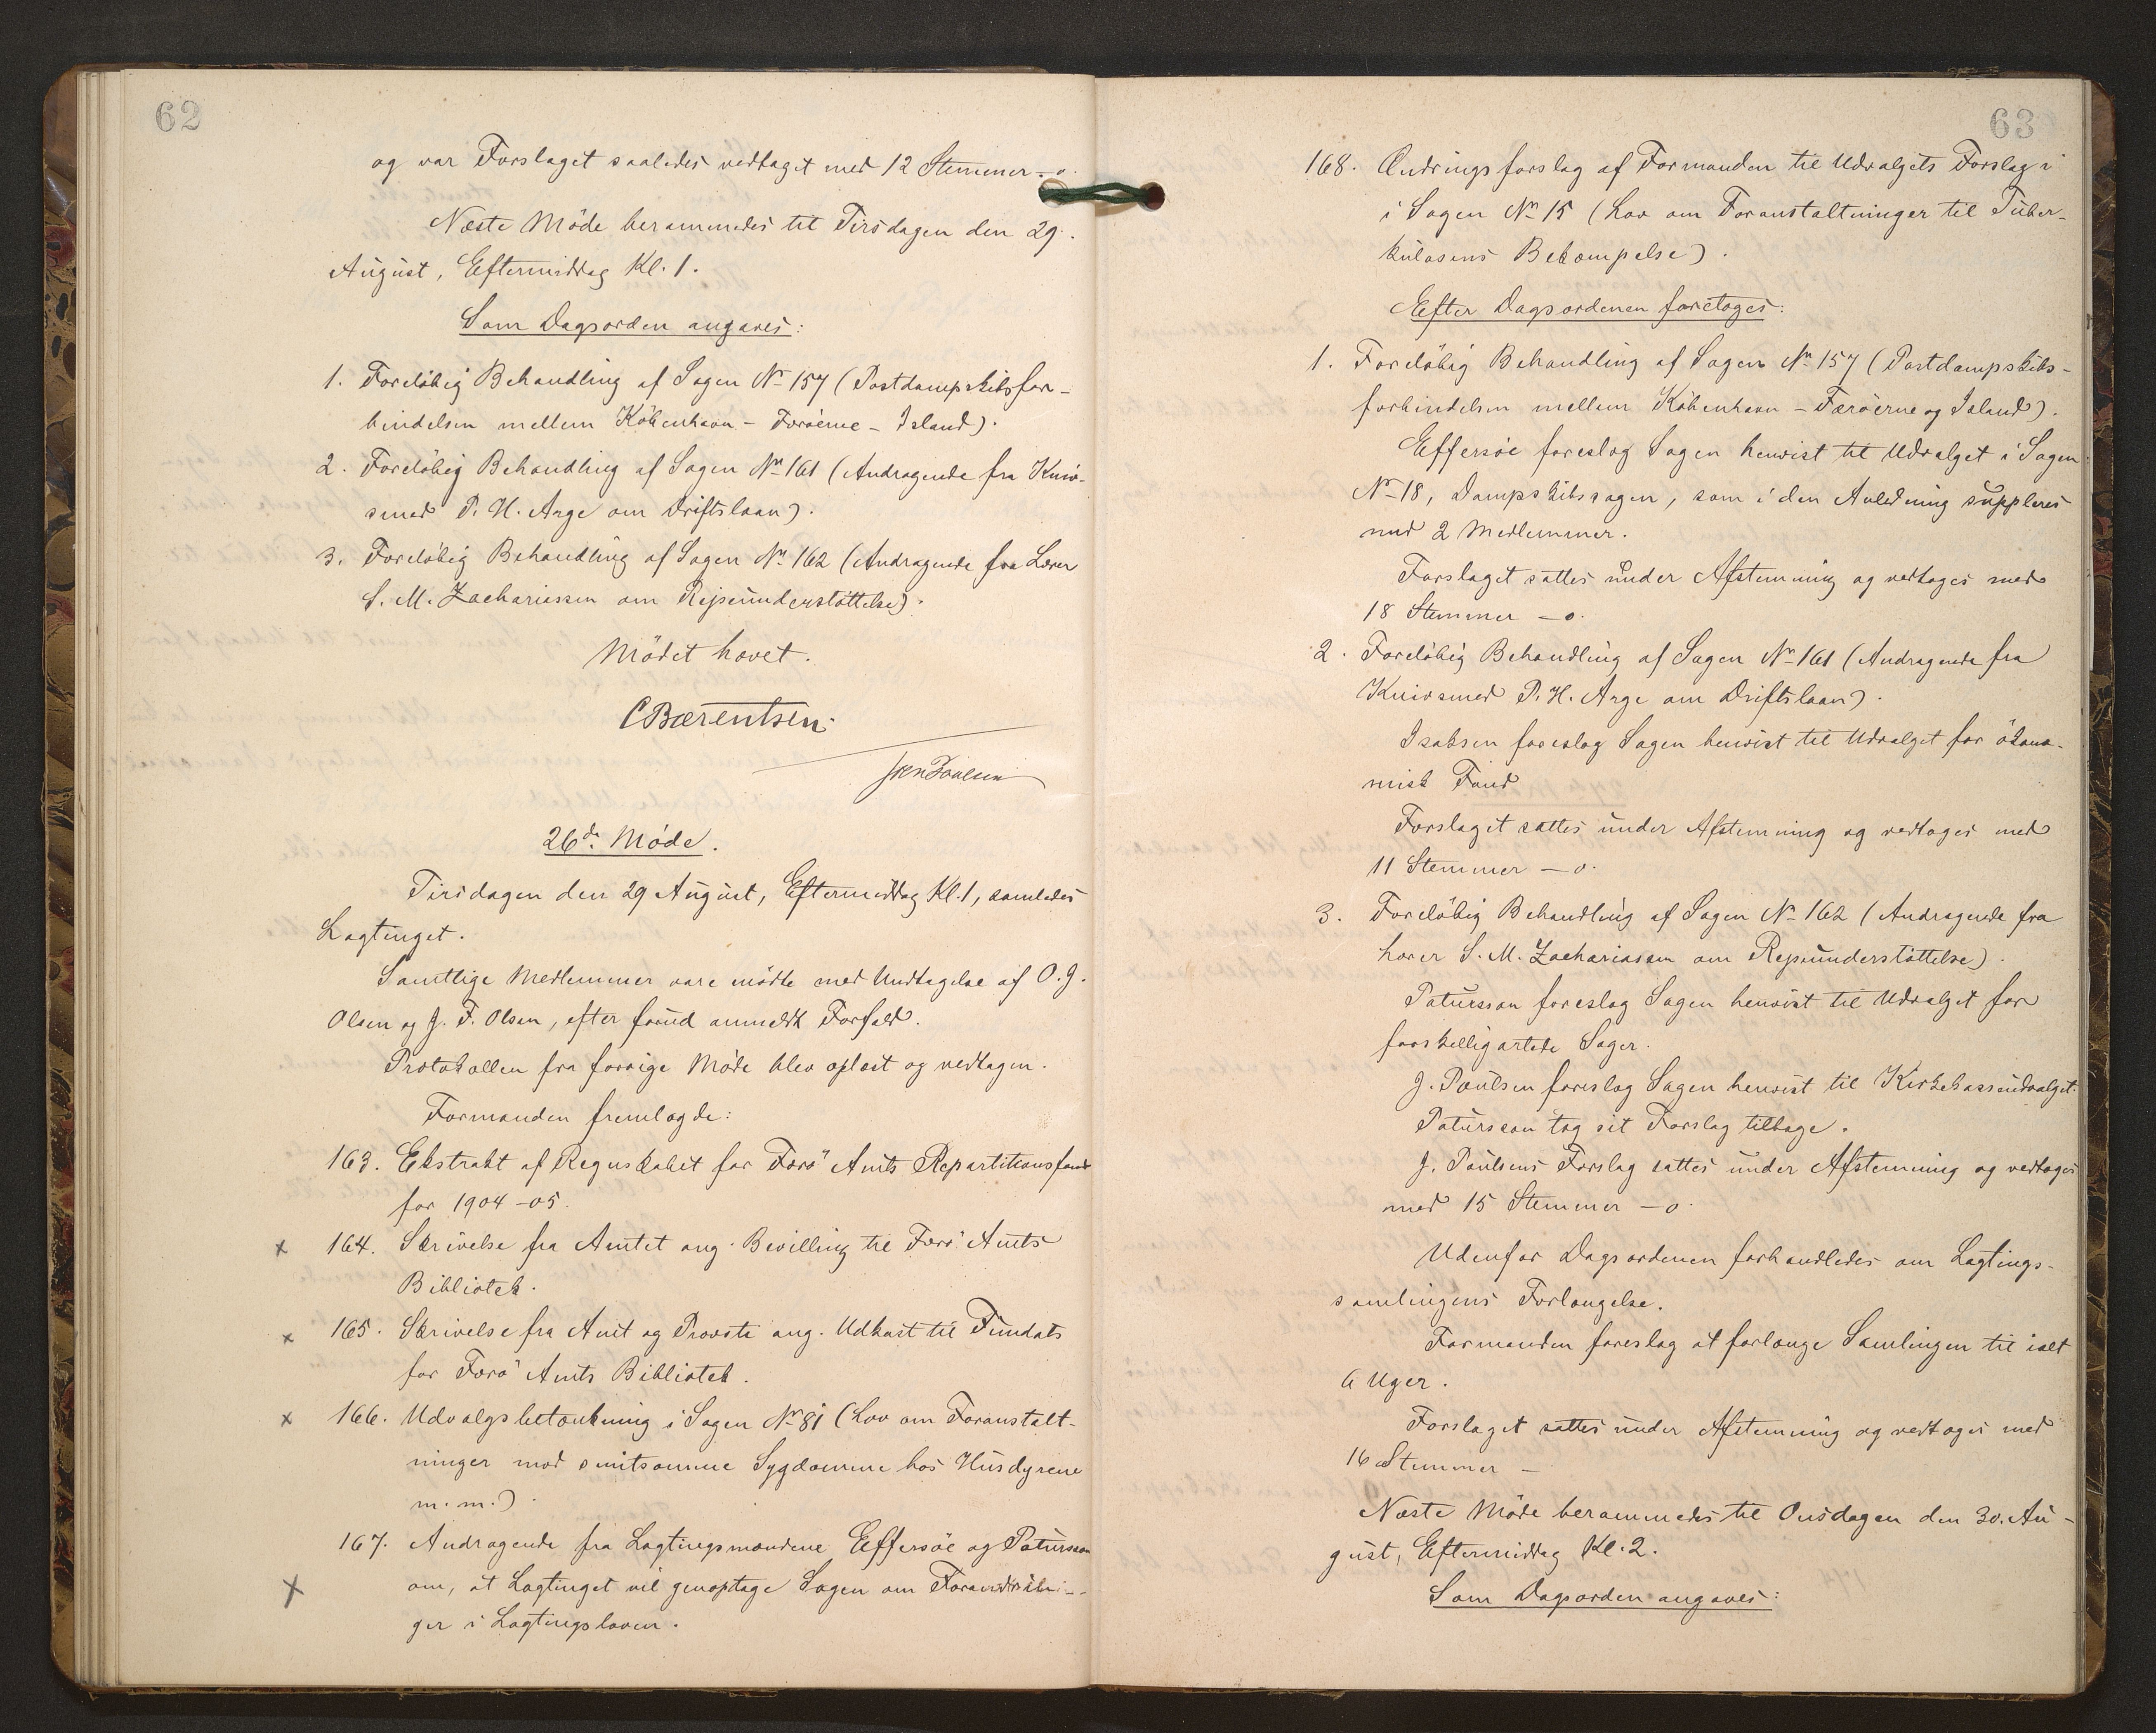 62
og var Forslaget saaledes vedtaget med 12 Stemmer – o.
Næste Möde berammedes til Tirsdagen den 29.
August, Eftermiddag Kl. 1.
Som Dagsorden angaves:
1. Foreløbig Behandling af Sagen No 157 (Postdampskibsfor-
bindelsen mellem København – Færøerne – Island).
2. Foreløbig Behandling af Sagen No 161 (Andragende fra Kniv-
smed P. H. Arge om Driftslaan).
3. Foreløbig Behandling af Sagen No 162 (Andragende fra Lærer
S. M. Zachariasen om Rejseunderstøttelse).
Mödet hævet.
C Bærentsen.
Poulsen
26de Möde.
Tirsdagen den 29 August, Eftermiddag Kl. 1, samledes
Lagtinget.
Samtlige Medlemmer vare mödte med Undtagelse af O. J.
Olsen og J. F. Olsen, efter forud anmeldt Forfald.
Protokollen fra forrige Möde blev oplæst og vedtagen.
Formanden fremlagde:
163. Ekstrakt af Regnskabet for Færö Amts Repartitionsfond
for 1904–05.
x 164. Skrivelse fra Amtet ang. Bevilling til Færö Amts
Bibliotek.
x 165. Skrivelse fra Amt og Provsti ang. Udkast til Fundats
for Færö Amts Bibliotek.
x 166. Udvalgsbetænkning i Sagen Nr 81 (Lov om Foranstalt-
ninger mod smitsomme Sygdomme hos Husdyrene
m. m.).
167. Andragende fra Lagtingsmændene Effersøe og Patursson
x om, at Lagtinget vil genoptage Sagen om Forandrin-
ger i Lagtingsloven.
63
168. Ændringsforslag af Formanden til Udvalgets Forslag i
i Sagen No 15 (Lov om Foranstaltninger til Tuber-
kulosens Bekæmpelse).
Efter Dagsordenen foretoges:
1. Foreløbig Behandling af Sagen No 157 (Postdampskibs-
forbindelsen mellem København – Færøerne og Island).
Effersøe foreslog Sagen henvist til Udvalget i Sagen
No 18, Dampskibssagen, som i den Anledning suppleres
med 2 Medlemmer.
Forslaget sattes under Afstemning og vedtoges med
18 Stemmer – o.
2. Foreløbig Behandling af Sagen No 161 (Andragende fra
Knivsmed P. H. Arge om Driftslaan).
Isaksen foreslog Sagen henvist til Udvalget for ökono-
misk Fond
Forslaget sattes under Afstemning og vedtoges med
11 Stemmer – o.
3. Foreløbig Behandling af Sagen No 162 (Andragende fra
Lærer S. M. Zachariasen om Rejseunderstøttelse).
Patursson foreslog Sagen henvist til Udvalget for
forskelligartede Sager.
J. Poulsen foreslog Sagen henvist til Kirkekasseudvalget.
Patursson tog sit Forslag tilbage.
J. Poulsens Forslag sattes under Afstemning og vedtoges
med 15 Stemmer – o.
Udenfor Dagsordenen forhandledes om Lagtings-
samlingens Forlængelse.
Formanden foreslog at forlænge Samlingen til ialt
6 Uger.
Forslaget sattes under Afstemning og vedtoges med
16 Stemmer –
Næste Möde berammedes til Onsdagen den 30. Au-
gust, Eftermiddag Kl. 2.
Som Dagsorden angaves: